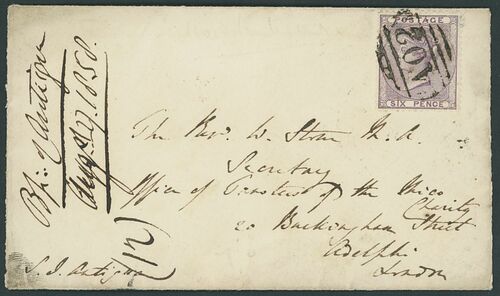 POSTAGE
A02
SIX PENCE
Bp: of Antigua
Aug. 27. 1858.
The Revd. W. M. A.
Secretary
Office of Trustees of the Mico
Charity
20 Buckingham Street
Adelphi
London
(12)
Antigua